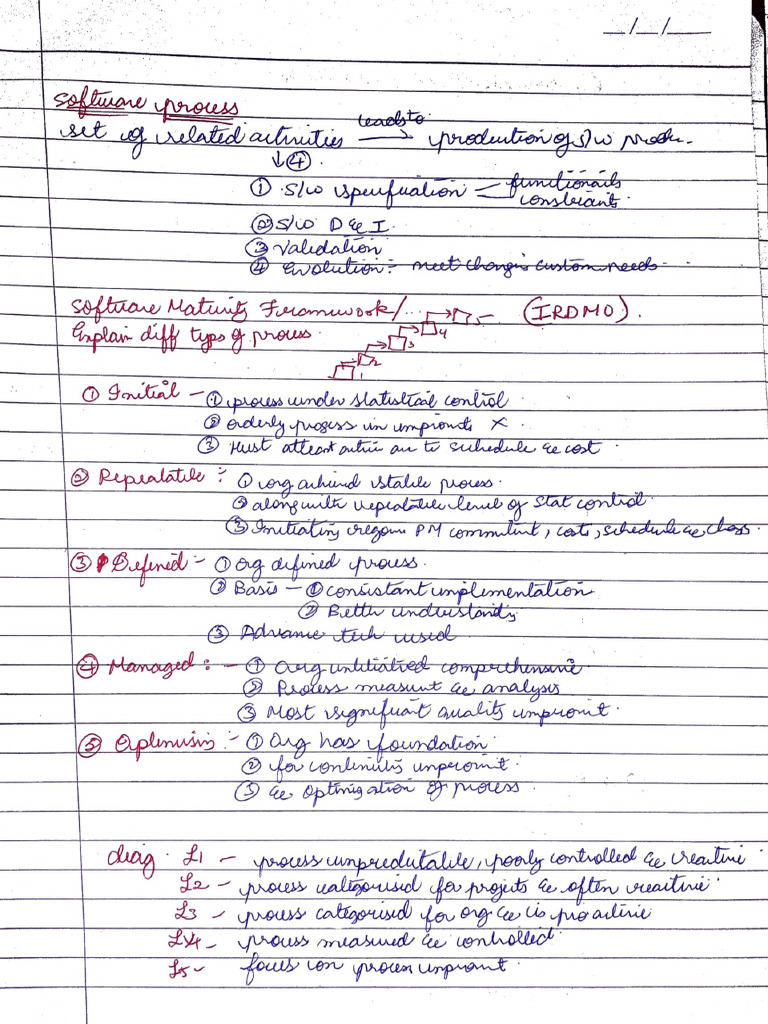 __/__/____
software process
set of related activities leads to → production of S/w produ.
↓ ④
① S/w specification = functionails
constraints
② S/w D & I
③ Validation
④ Evolution :- meet changis custom needs
Software Maturity Framewook/... (IRDMO).
Explain diff type of process.
1 2 3 4 5
① Initial - ① process under statistical control
② orderly progess in improvmts ×
③ Must atleast achive an to schedule & cost.
② Repealatile :- ① org achievd stable process.
② along with repeatable level of stat control
③ Initiating regous PM commitmt, costs, schedule & chngs.
③ Defined :- ① Org defined process.
② Basis - ① consistant implementation
② Better understandg
③ Advance tech used
④ Managed :- ① Org intitiatived comprehensive
② Process measurmt & analysis
③ Most significant quality improvmt.
⑤ Optimusin :- ① Org has foundation
② for continuous improvmt.
③ & Optimization of process.
diag. L1 - process unpredictable, poorly controlled & reactive
L2 - process categorised for projects & often reactive
L3 - process categorised for org & is proactive
L4 - process measured & controlled
L5 - focus on process improvmt.